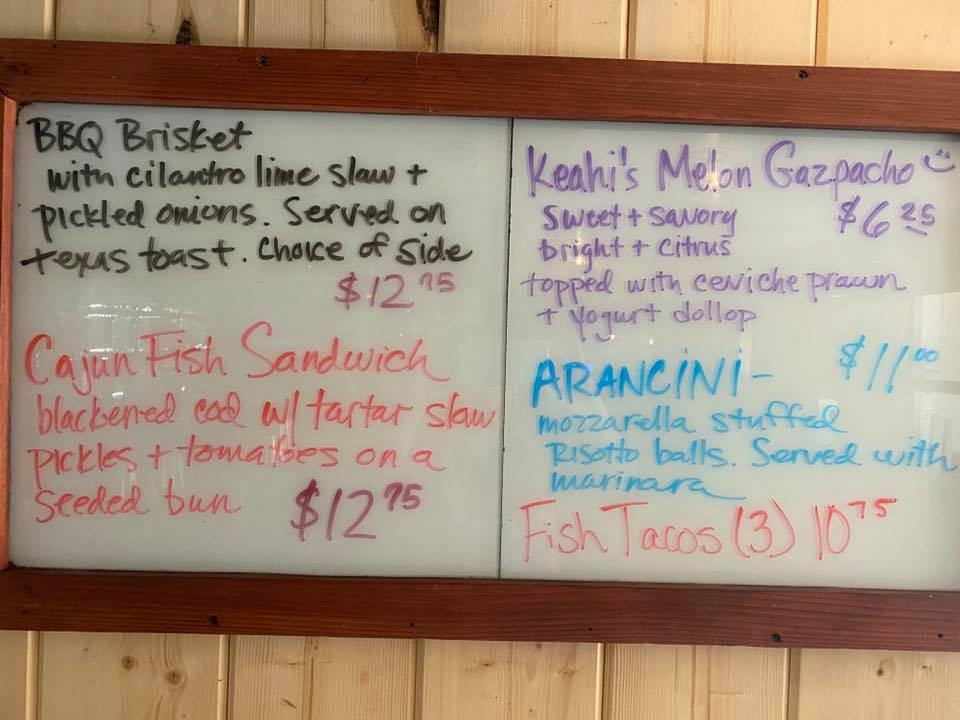 BBQ Brisket
with cilantro lime slaw +
pickled onions. Served on
texas toast. Choice of side
$12 75
Cajun Fish Sandwich
blackened cod w/ tartar slaw
pickles + tomatoes on a
seeded bun $12 75
Keahi's Melon Gazpacho
sweet + savory $6 25
bright + citrus
topped with ceviche prawn
+ yogurt dollop
ARANCINI- $11 00
mozzarella stuffed
Risotto balls. Served with
marinara
Fish Tacos (3) 10 75